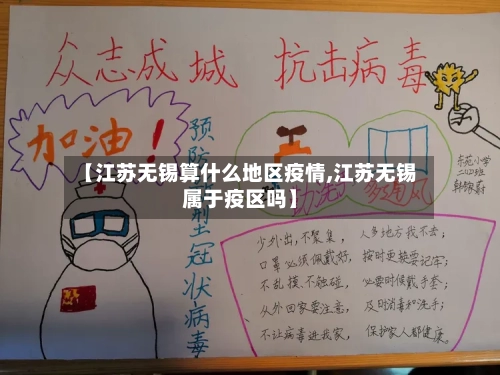 众志成城 抗击病毒
加油！
预防新型冠状病毒
勤洗手
多通风
东苑小学
二(四)班
【江苏无锡算什么地区疫情,江苏无锡
属于疫区吗】
少外出,不聚集, 人多地方我不去;
口罩必须佩戴好, 按时更换要记牢;
不乱摸、不触碰, 必要时候戴手套;
从外回家要注意, 及时消毒和洗手;
不让病毒进我家, 保护家人都健康。